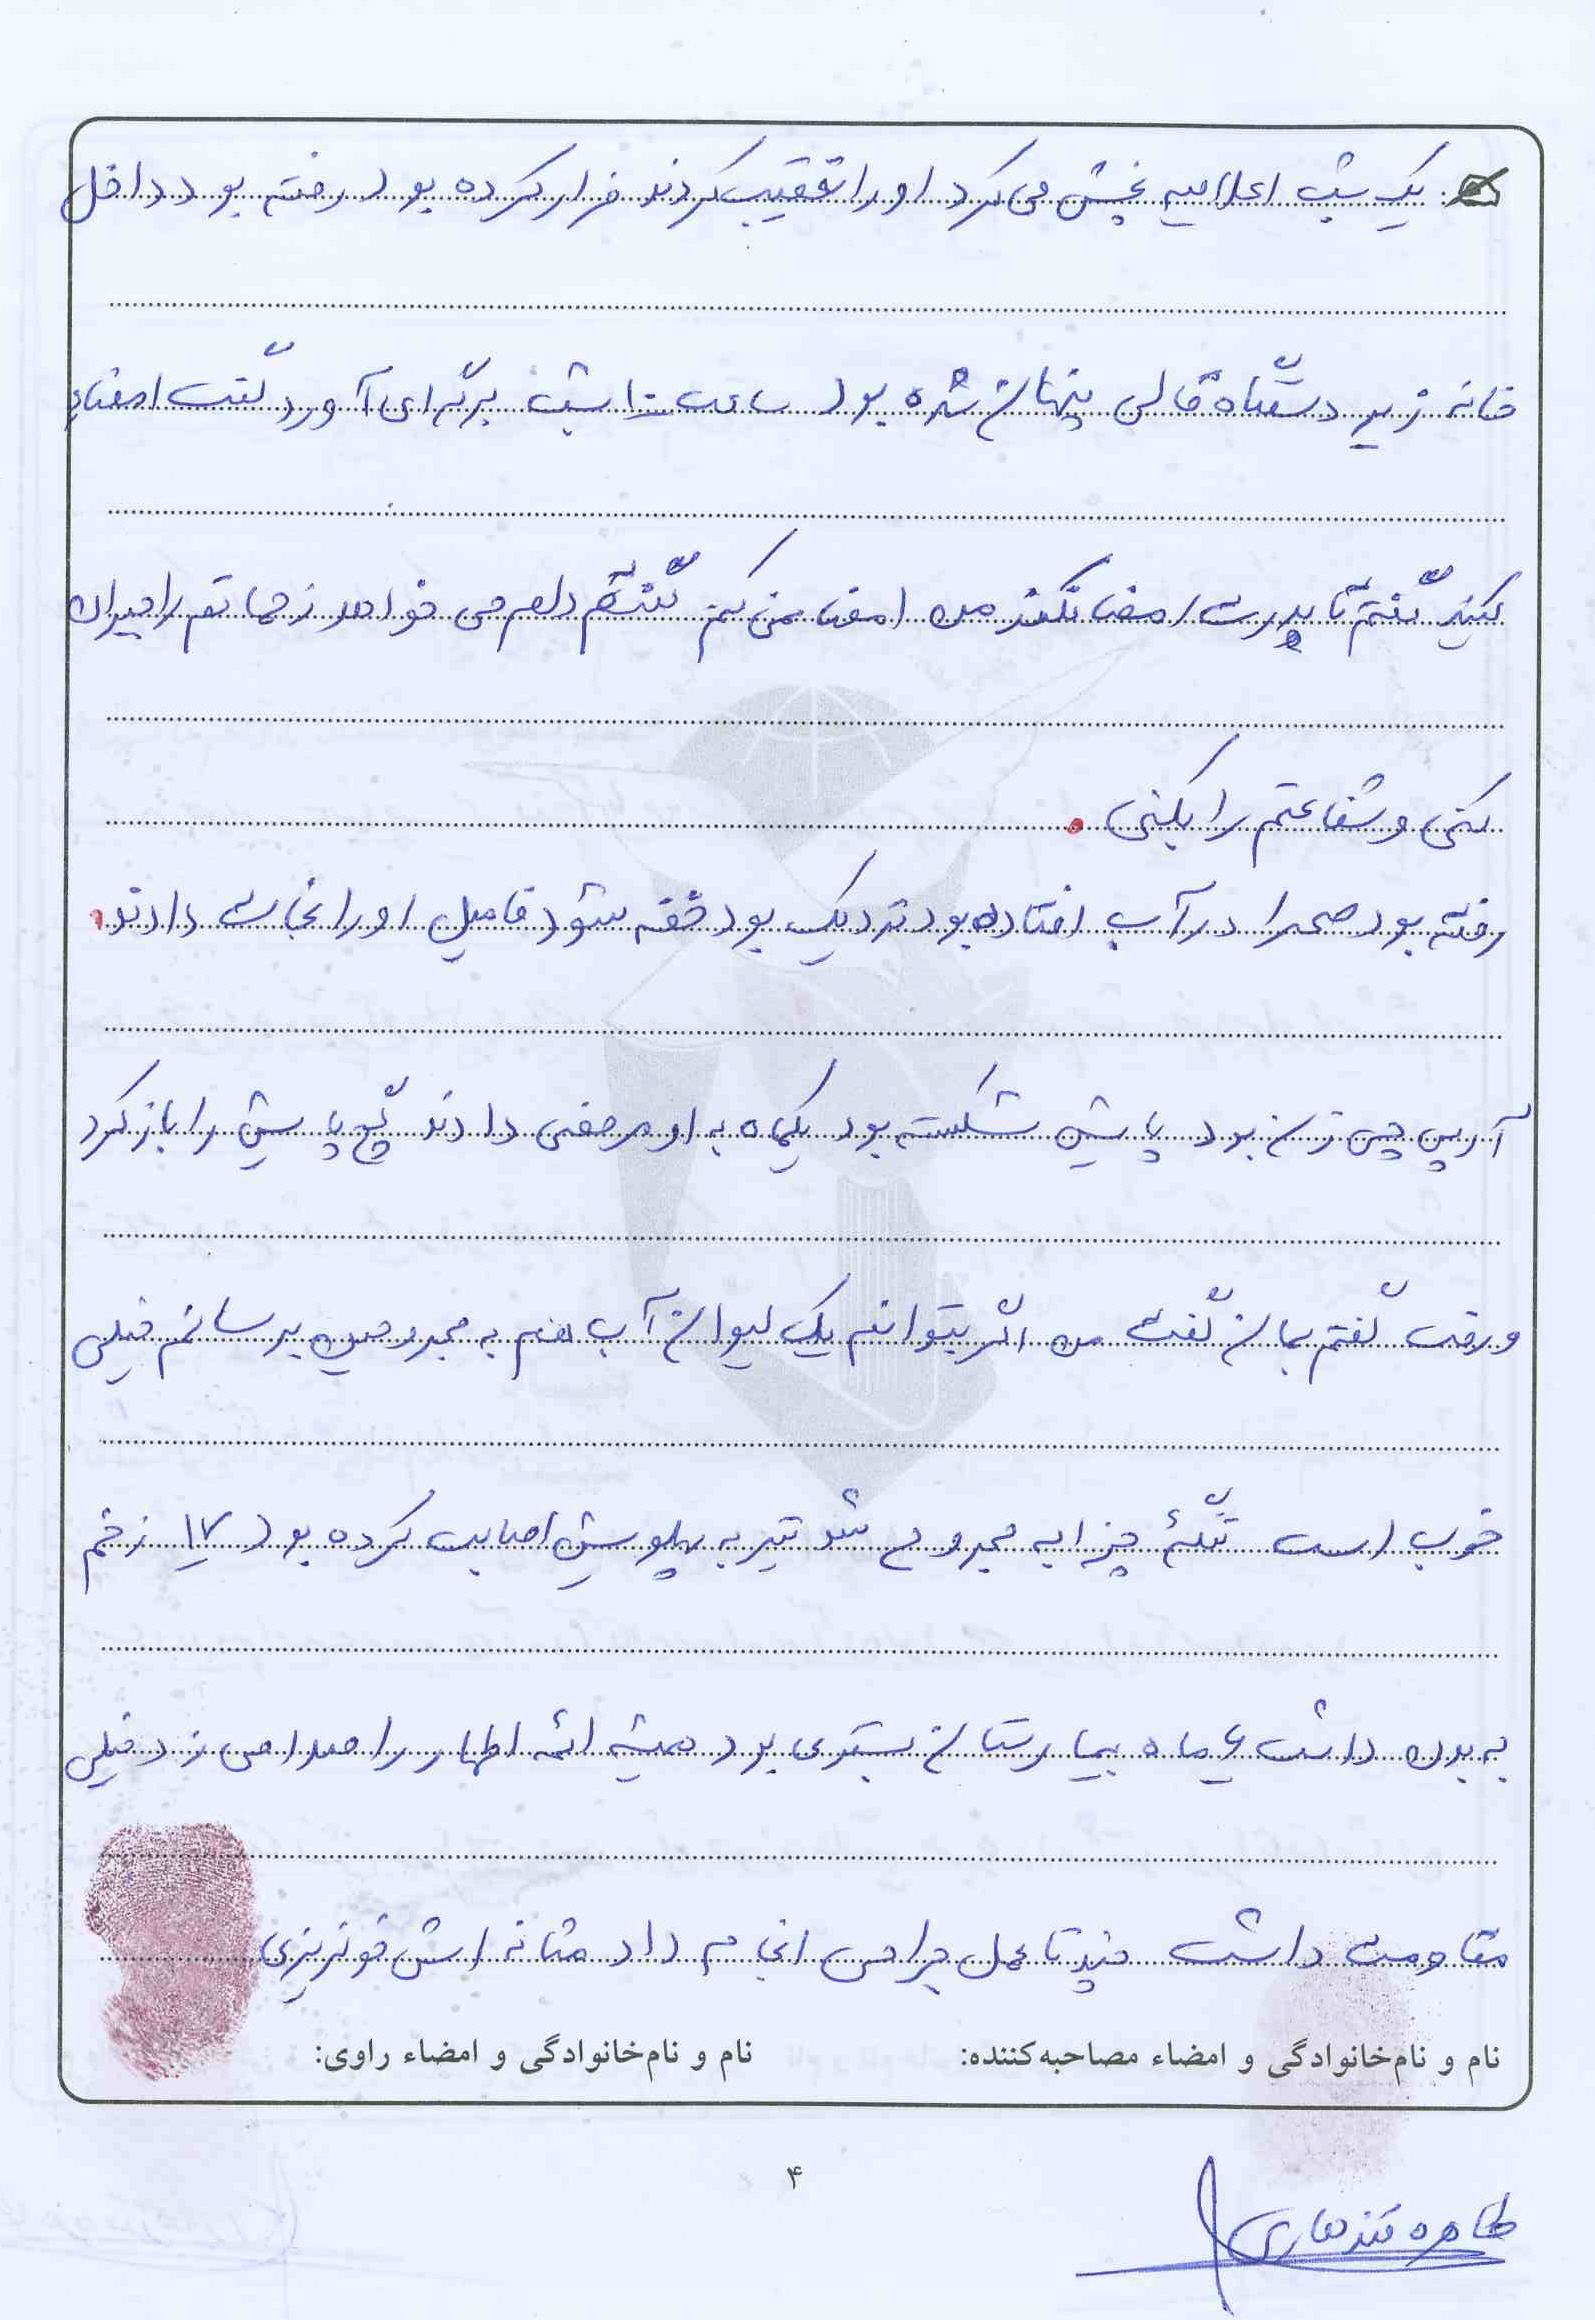 یک شب اعلامیه پخش می کرد او را تعقیب کردند فرار کرده بود رفته بود داخل
خانه زیر دستگاه قالی پنهان شده بود ساعت ۱۰ شب برگه ای آورد گفت امضاء
کنید گفتم تا پدرت امضا نکند من امضا نمی کنم گفتم دلم می خواهد زحماتم را جبران
کنی و شفاعتم را بکنی
رفته بود صحرا در آب افتاده بود نزدیک بود خفه شود فامیل او را نجات دادند
آر پی چی زن بود پایش شکسته بود یکماه به او مرخصی دادند گچ پایش را باز کرد
و رفت گفتم بمان گفت من اگر بتوانم یک لیوان آب هم به مجروحین برسانم خیلی
خوب است تنگهٔ چزابه مجروح شد تیر به پهلویش اصابت کرده بود ۱۷ زخم
به بدن داشت ۶ ماه بیمارستان بستری بود همیشه ائمه اطهار را صدا می زد خیلی
مقاومت داشت چند تا عمل جراحی انجام داد مثانه اش خونریزی
نام و نام‌خانوادگی و امضاء مصاحبه‌کننده:
نام و نام‌خانوادگی و امضاء راوی:
۴
طاهره قندهاری